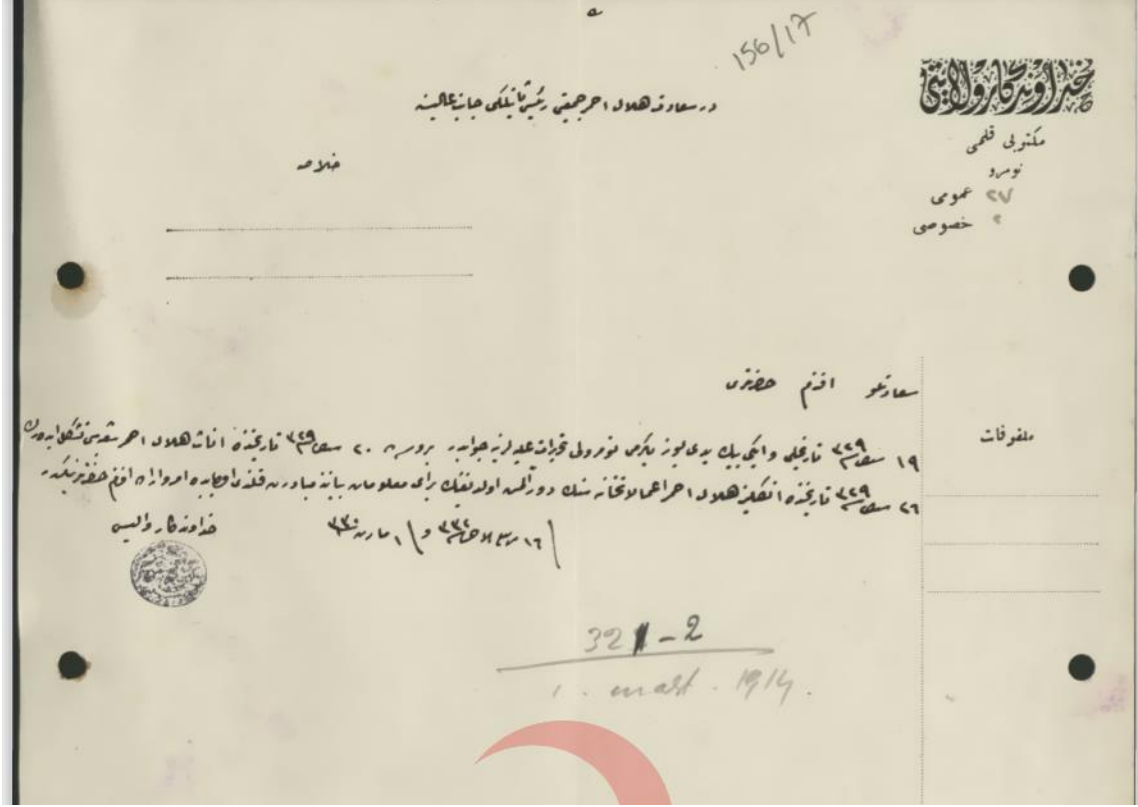 156/17
خداوندگار ولايتى
مكتوبى قلمى
نومرو
عمومى ٢٧
خصوصى ٢
در سعادت هلال احمر جمعيتى رئيس ثانيلكى جانب عاليسنه
خلاصه
ملفوفات
سعادتلو افندم حضرتلرى
١٩ ٣٢٩ تاريخلى وايكى بيك يدى يوز يكرمى نومرولى تحريرات عليه لرينه جوابدر بروسه ٢٠ ٣٢٩ تاريخنده اناث هلال احمر تشكل ايدرك
٢٦ ٣٢٩ تاريخنده انكليز هلال احمر اولنديغنك براى معلومات بيانه مبادرت قلندى اولبابده امر واراده افندم حضرتلرينكدر
١٦ ربيع الاخر ٣٣٢ و ١ مارت ٣٣٠
خداوندگار واليسى
32 - 2
1. mart. 1914.